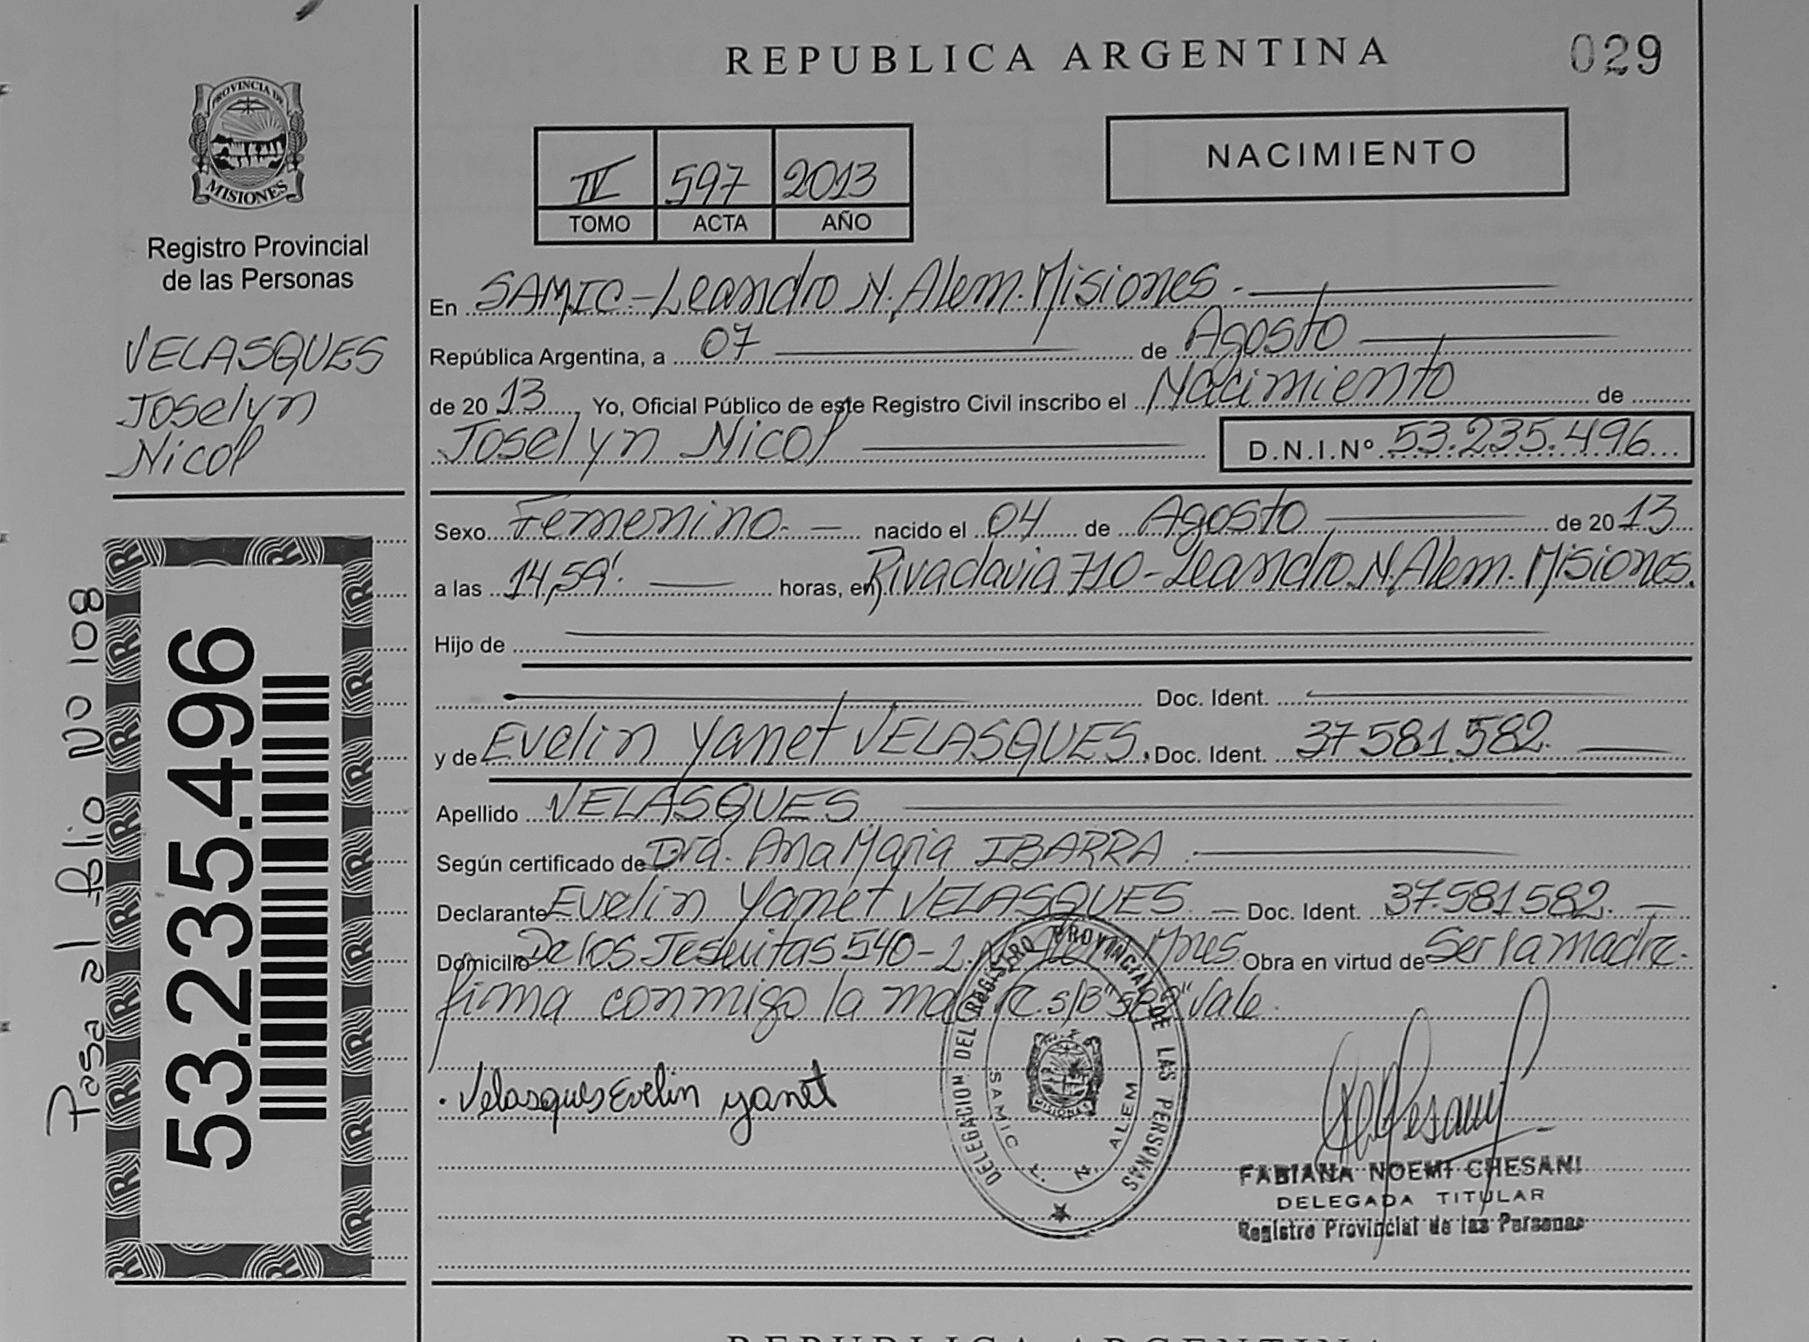 REPUBLICA ARGENTINA
029
PROVINCIA DE
MISIONES
Registro Provincial
de las Personas
VELASQUES
Joselyn
Nicol
Pasa al folio No 108
53.235.496
NACIMIENTO
IV 597 2013
TOMO ACTA AÑO
En SAMIC.-Leandro N. Alem. Misiones.
República Argentina, a 07 de Agosto
de 20 13 Yo, Oficial Público de este Registro Civil inscribo el Nacimiento de
Joselyn Nicol D.N.I.Nº 53.235.496
Sexo Femenino. nacido el 04 de Agosto de 20 13
a las 14,59'. horas, en Rivadavia 710-Leandro. N. Alem. Misiones.
Hijo de
Doc. Ident.
y de Evelin Yanet VELASQUES. Doc. Ident. 37.581.582.
Apellido VELASQUES
Según certificado de Dra. Ana Maria IBARRA.
Declarante Evelin Yanet VELASQUES. Doc. Ident. 37.581.582.
Domicilio De los Jesuitas 540-L.N. Alem Mnes Obra en virtud de Ser la madre.
firma conmigo la madre. s/B" "Vale.
Velasques Evelin yanet
DELEGACION DEL REGISTRO PROVINCIAL DE LAS PERSONAS
SAMIC L. N. ALEM
MISIONES
FABIANA NOEMI CHESANI
DELEGADA TITULAR
Registro Provincial de las Personas
REPUBLICA ARGENTINA